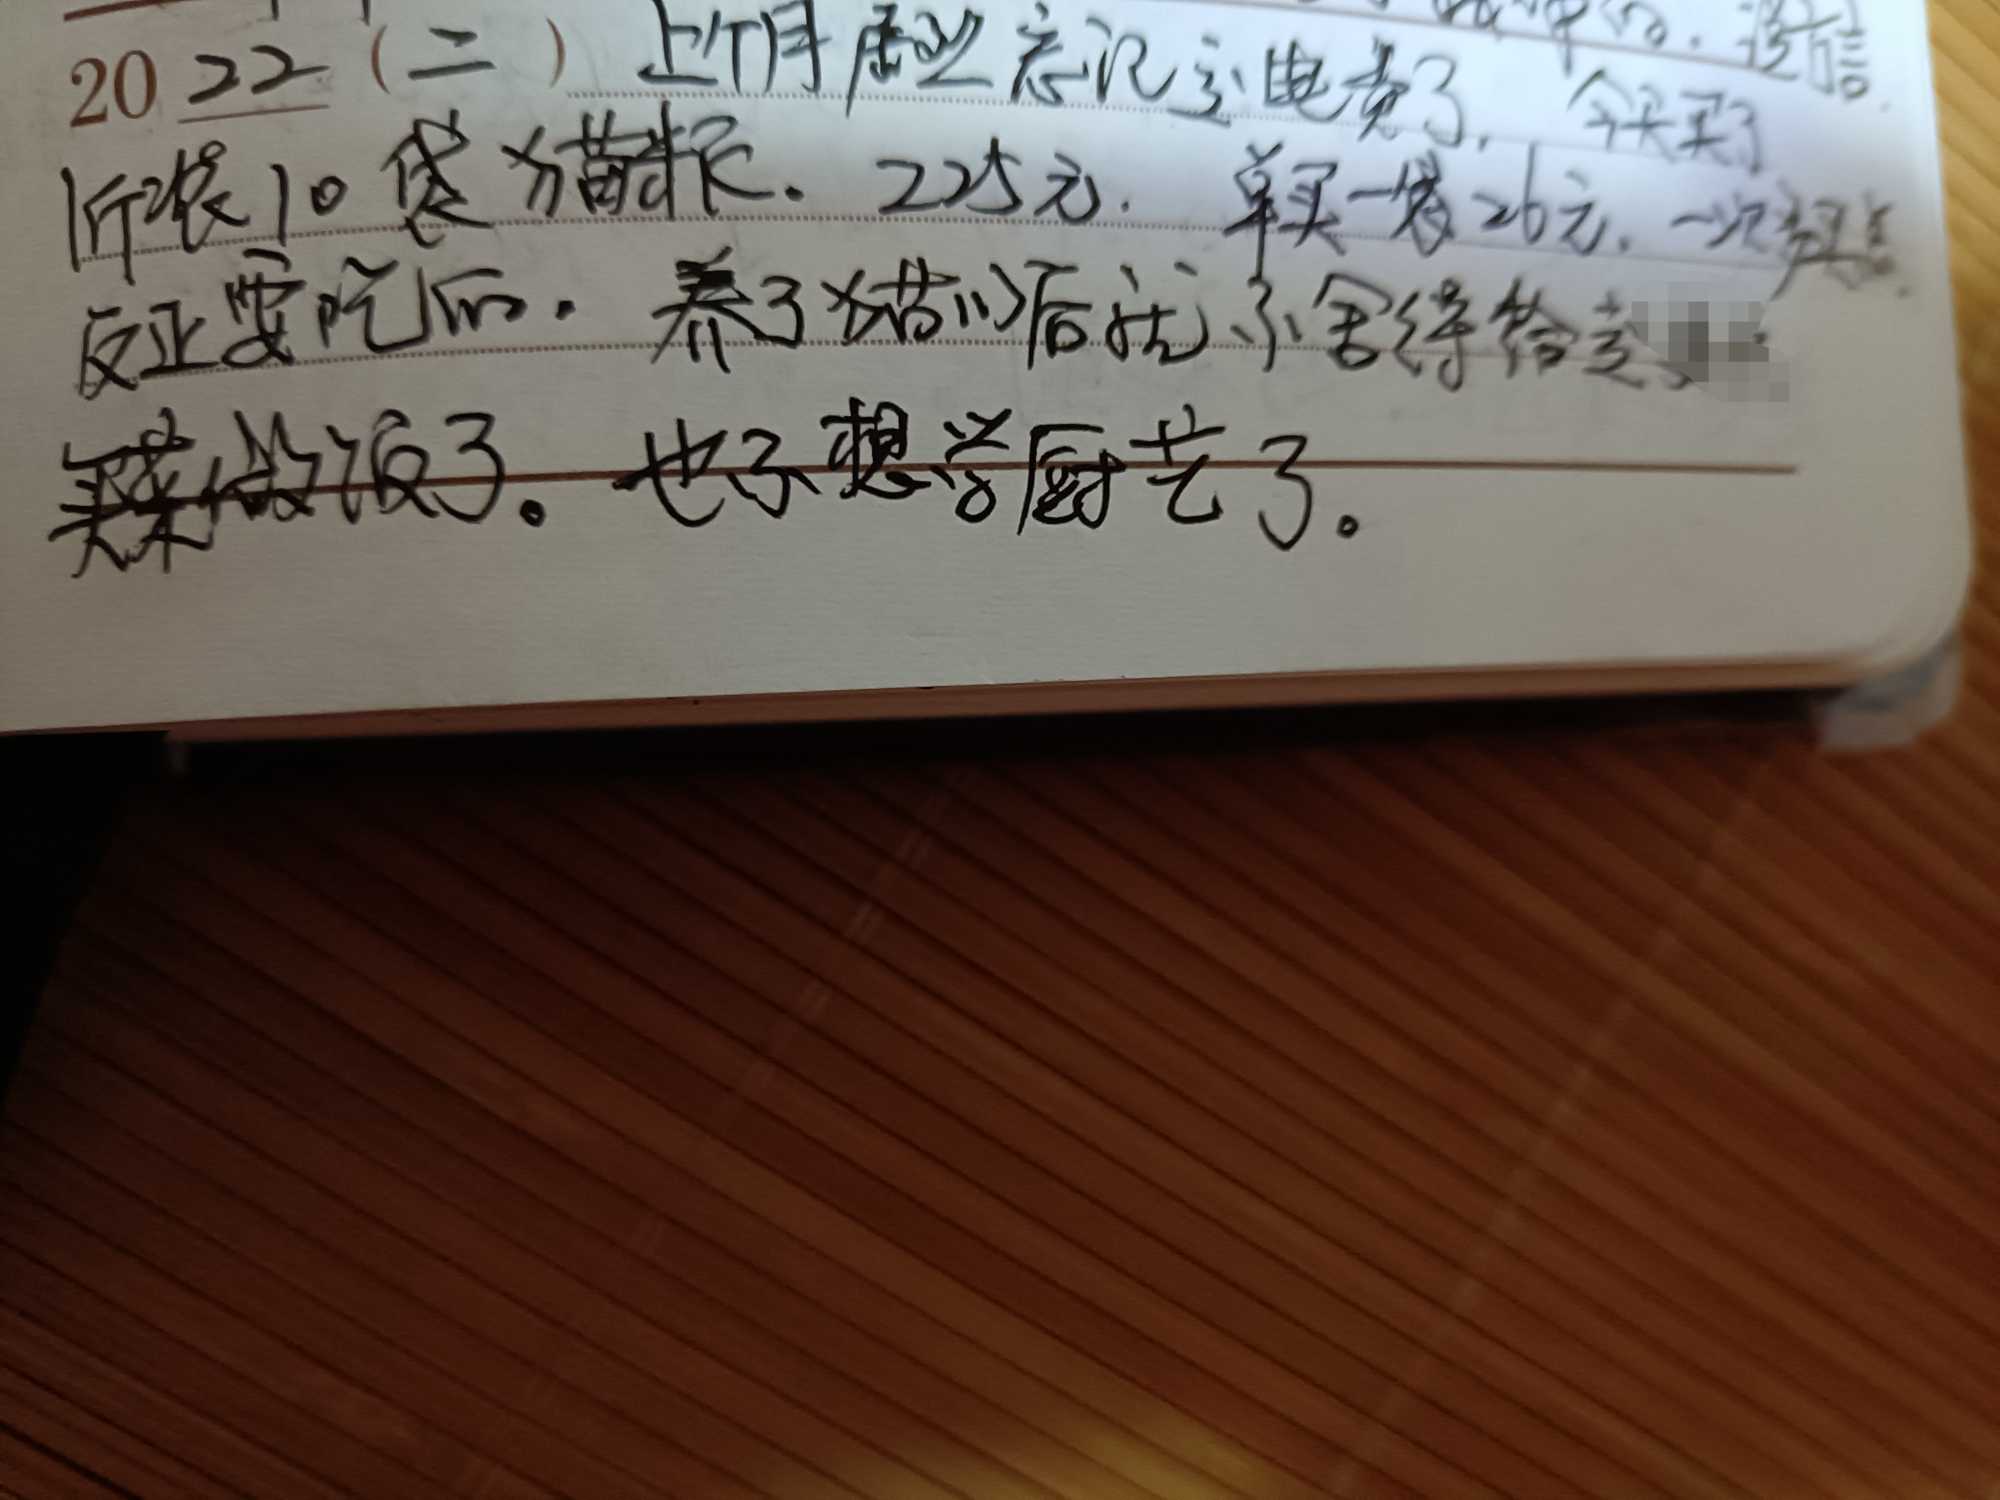 2022(二) 上个月 忘记 电费了. 今天买了
1斤装10袋猫粮. 225元. 单买一袋26元. 一次
反正要吃的. 养了猫以后就不舍得给
买菜做饭了。也不想学厨艺了。